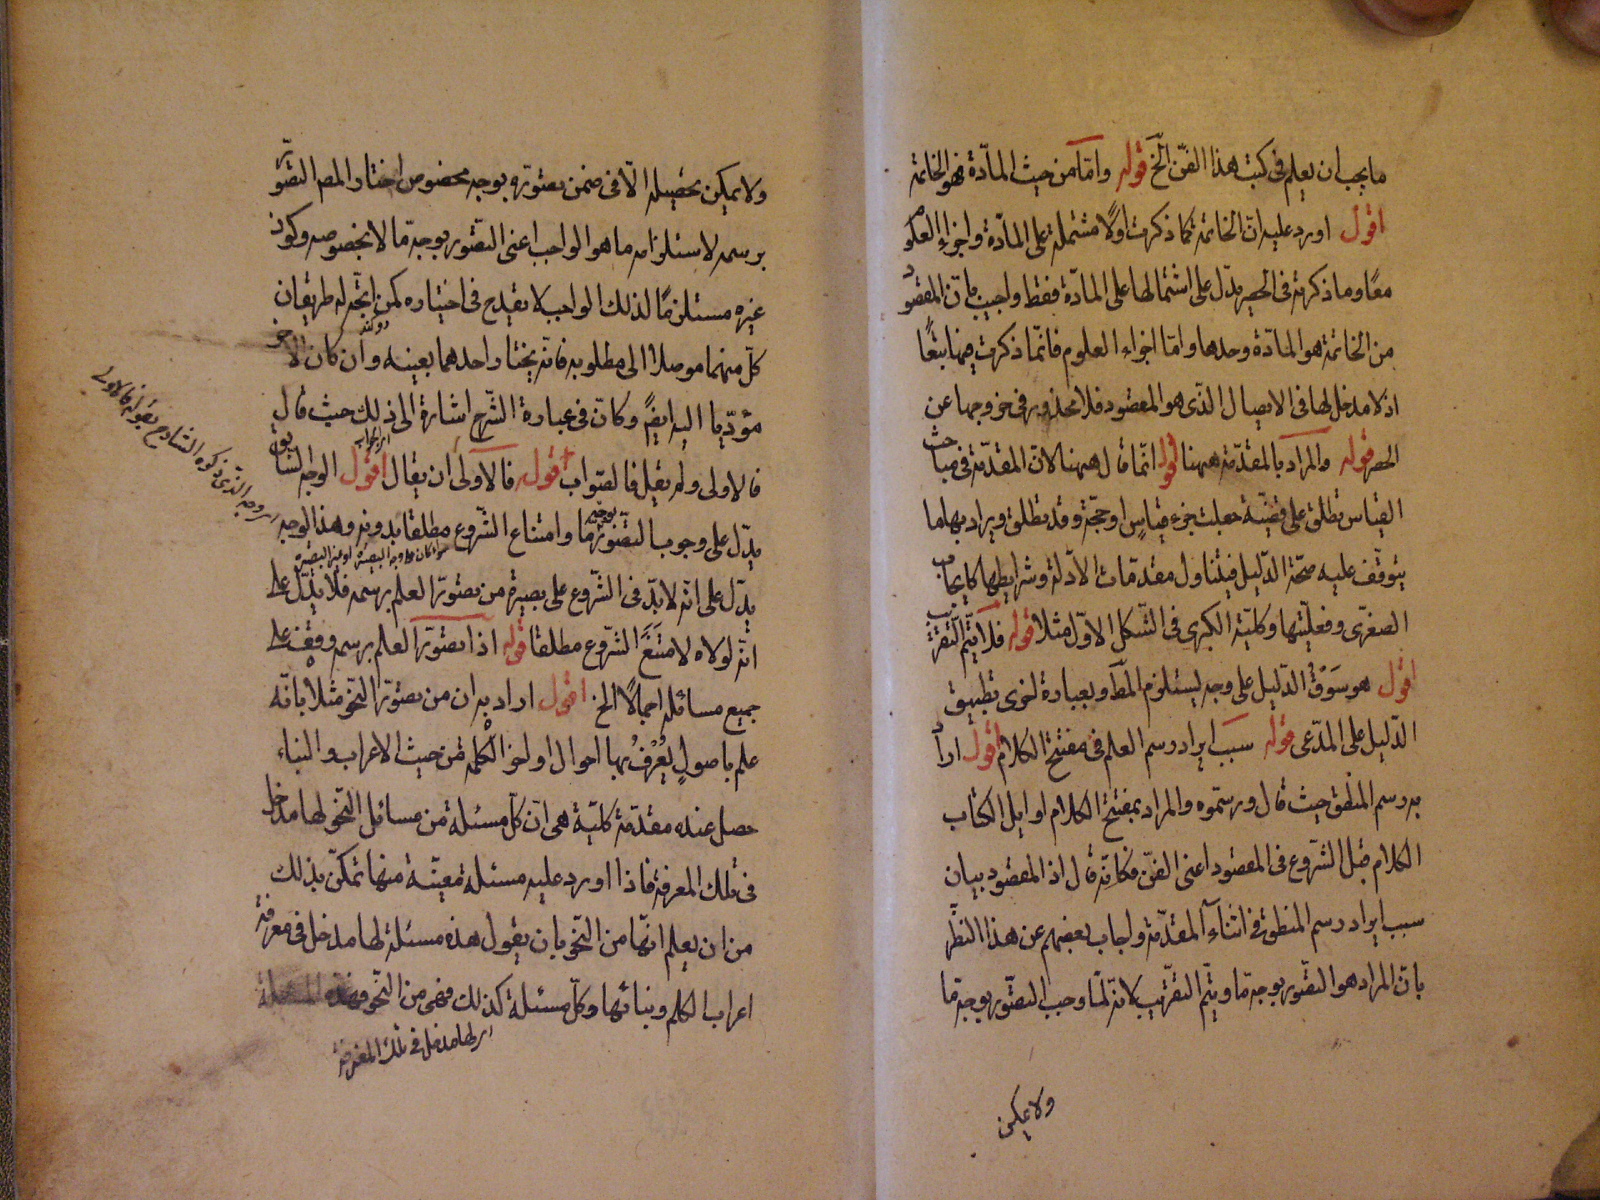 ما يجب ان يعلم فى كتب هذا الفنّ الخ قوله وامّا من حيث المادّة فهو الخاتمة
اقول اورد عليه انّ الخاتمة كما ذكرت اولًا مشتملة على المادّة واجزاء العلوم
معًا وما ذكرته فى الحصر يدّل على اشتمالها على المادّة فقط واجيب بانّ المقصود
من الخاتمة هو المادّة وحدها وامّا اجزاء العلوم فانّما ذكرت فيها تبعًا
اذ لا مدخل لها فى الايصال الذى هو المقصود فلا محذور فى خروجها عن
الحصر قوله والمراد بالمقدّمة ههنا اقول انّما قال ههنا لانّ المقدّمة فى مباحث
القياس تطلق على قضيّة جعلت جزء قياس او حجّة وقد تطلق ويراد بها ما
يتوقّف عليه صحّة الدّليل فيتناول مقدّمات الادلّة وشرايطها كايجاب
الصغرى وفعليّتها وكليّة الكبرى فى الشّكل الاوّل مثلا قوله فلا يتّم التّقريب
اقول هو سَوْقُ الدّليل على وجه يستلزم المط وبعبارة اخرى تطبيق
الدّليل على المدّعى قوله سبب ايراد رسم العلم فى مفتتح الكلام اقول اراد
به رسم المنطق حيث قال ورسّموه والمراد بمفتتح الكلام اوايل الكتاب
الكلام قبل الشّروع فى المقصود اعنى الفنّ فكانّه قال اذ المقصود بيان
سبب ايراد رسم المنطق فى اثناء المقدّمة واجاب بعضهم عن هذا النّظر
بانّ المراد هو التّصّور بوجه ما ويتّم التقريب لانّه لمّا وجب التصّور بوجه ما
ولا يمكن
ولا يمكن تحصيله الّا فى ضمن تصوّره بوجه مخصوص اختار المص التصّور
برسمه لاستلزامه ما هو الواجب اعنى التصّور بوجه ما لا بخصوصه وكون
غيره مستلزمًا لذلك الواجب لا يقدح فى اختياره كمن اتّجه له طريقان
كلّ منهما موصلا الى مطلوبه فانّه يختار احدهما بعينه وان كان الاخر
مؤدّيا اليه ايضً وكانّ فى عبارة الشّرح اشارة الى ذلك حيث قال
فالاولى ولم يقل فالصّواب قوله فالاولى ان يقال اقول الوجه السّابق
يدّل على وجوب التصّور بوجه ما وامتناع الشّروع مطلقا بدونه وهذا الوجه
يدّل على انّه لا بدّ فى الشّروع على بصيرة من تصوّر العلم برسمه فلا يدّل على
انّه لولاه لامتنع الشّروع مطلقا قوله اذا تصوّر العلم برسمه وقف على
جميع مسائله اجمالًا الخ اقول اراد به ان من تصوّر النّحو مثلا بانّه
علم باصولٍ يُعْرَفُ بها احوال اواخر الكلمة من حيث الاعراب والبناء
حصل عنده مقدّمة كليّة هى انّ كلّ مسئلة من مسائل النّحو لها مدخل
فى تلك المعرفة فاذا اورد عليه مسئلة معيّنة منها تمكّن بذلك
من ان يعلم انّها من النّحو بان يقول هذه مسئلة لها مدخل فى معرفة
اعراب الكلم وبنائها وكلّ مسئلة كذلك فهى من النّحو فهذه المسئلة
اى لها مدخل فى تلك المعرفة
اى وجه الذى ذكره الشارح بقوله فالاولى